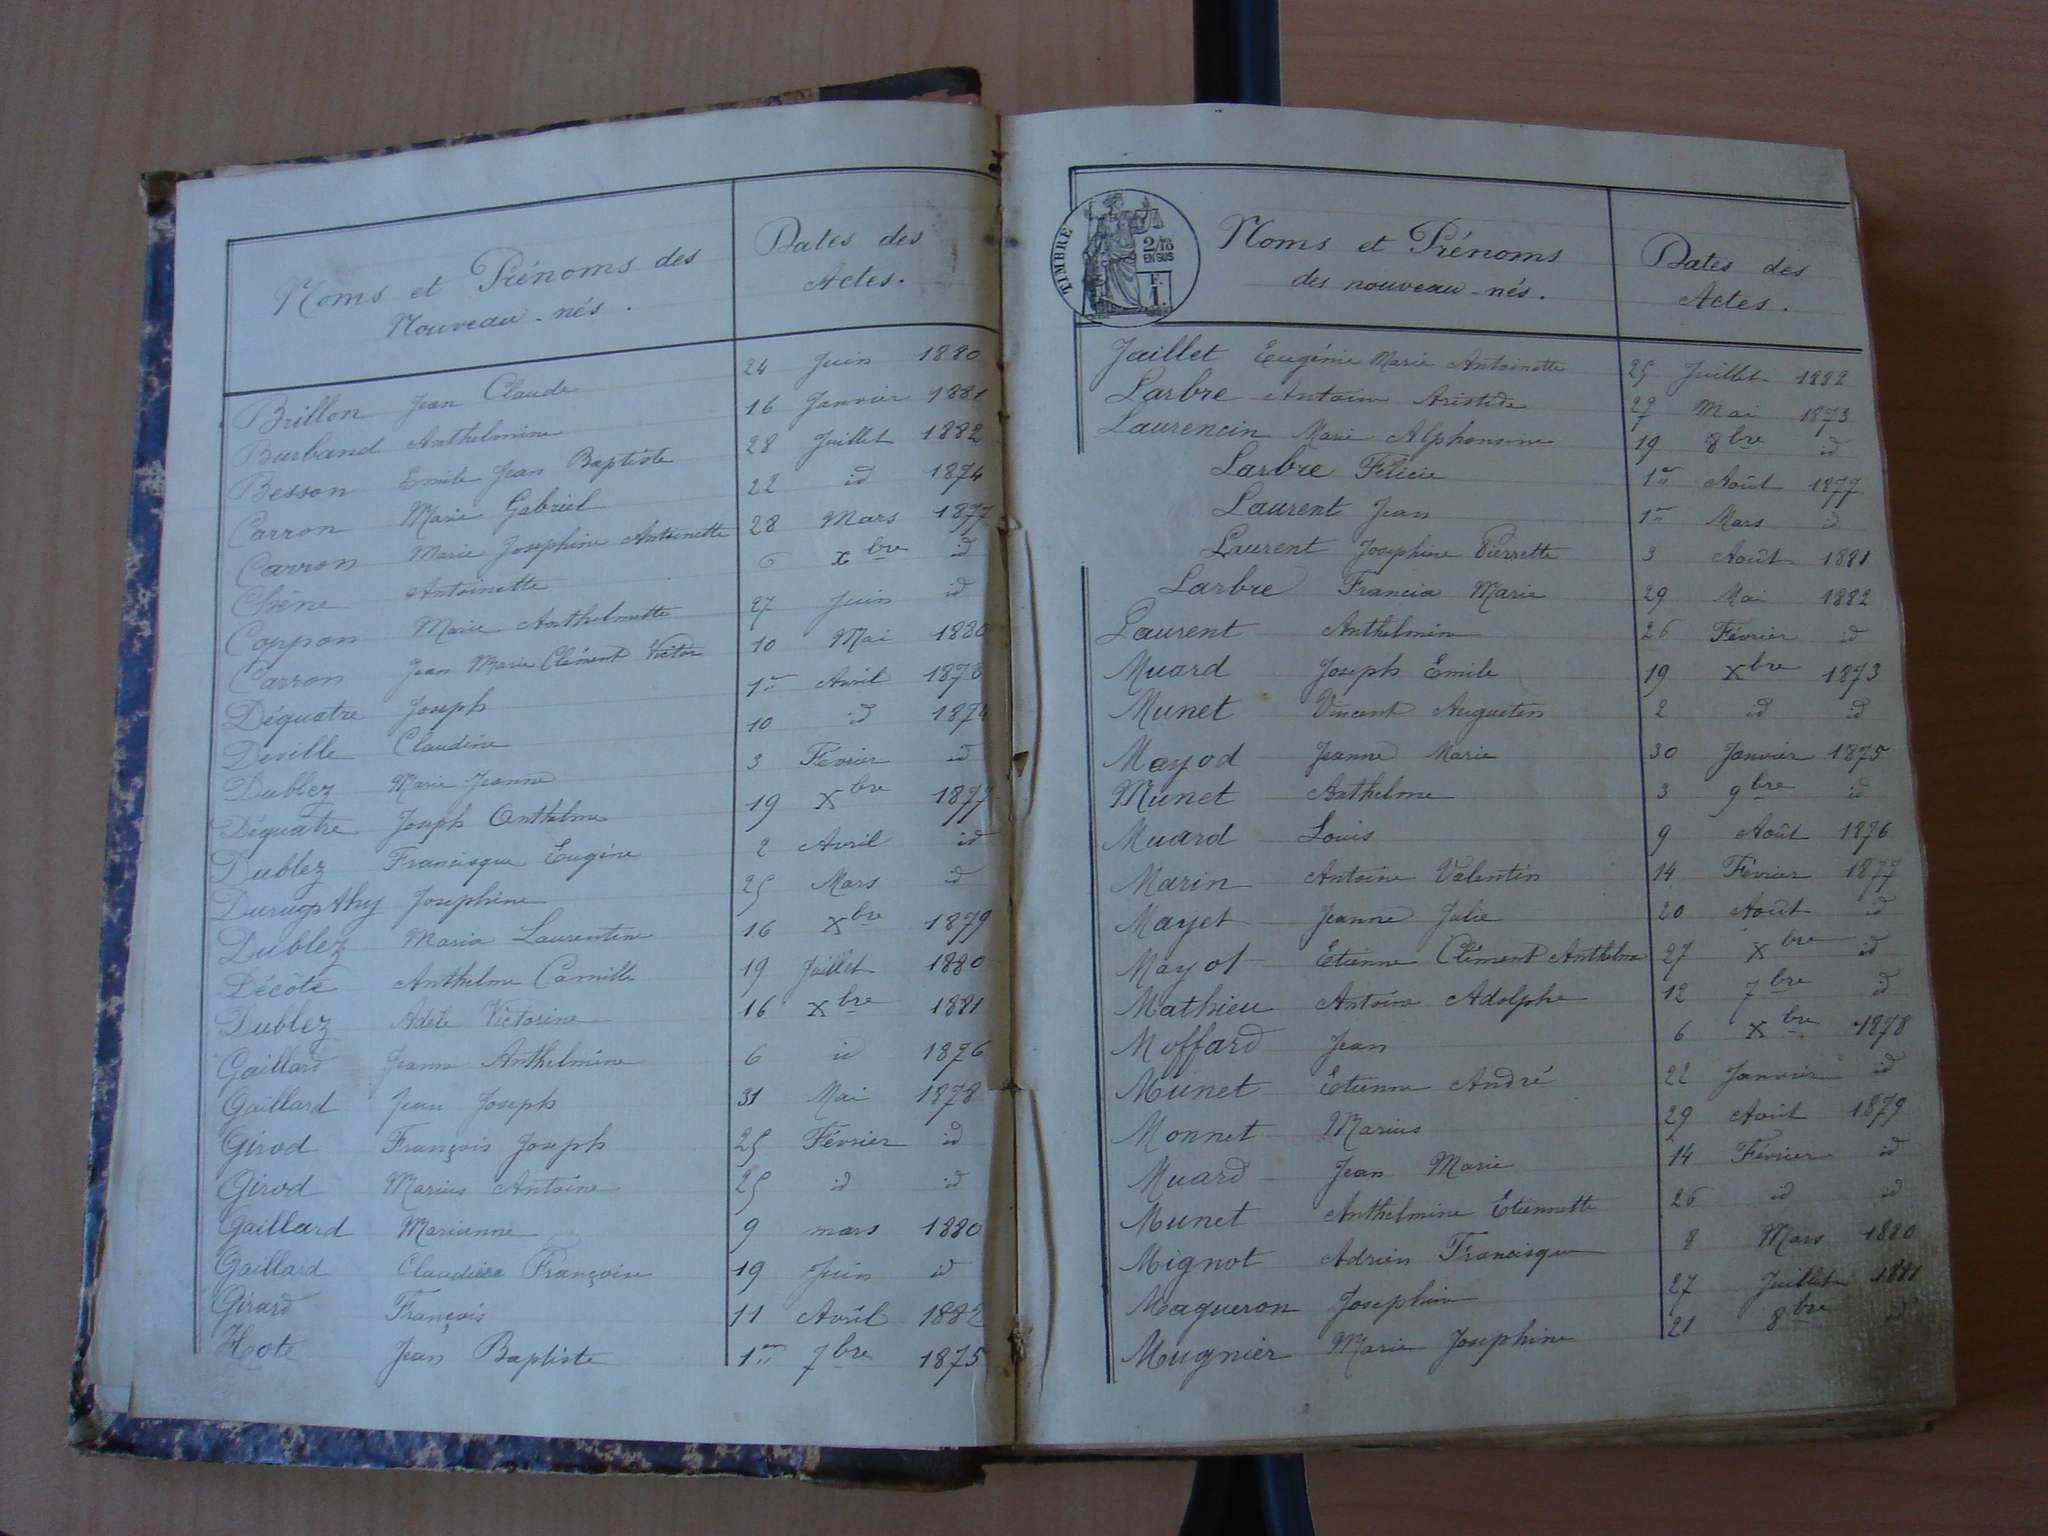 Noms et Prénoms des
Nouveau-nés.
Dates des
Actes.
Brillon Jean Claude 24 Juin 1880
Burband Anthelmine 16 Janvier 1881
Besson Emile Jean Baptiste 28 Juillet 1882
Carron Marie Gabriel 22 id 1874
Carron Marie Josephine Antoinette 28 Mars 1877
Chêne Antoinette 6 xbre id
Coppon Marie Anthelmette 27 Juin id
Carron Jean Marie Clément Victor 10 Mai 1880
Déquatre Joseph 1er Avril 1873
Deville Claudine 10 id 1874
Dublez Marie Jeanne 3 Février id
Déquatre Joseph Anthelme 19 Xbre 1877
Dublez Francisque Eugène 2 Avril id
Josephine 25 Mars id
Dublez Maria Laurentine 16 Xbre 1879
Décôte Anthelme Camille 19 Juillet 1880
Dublez Adèle Victorine 16 Xbre 1881
Gaillard Jeanne Anthelmine 6 id 1876
Gaillard Jean Joseph 31 Mai 1878
Girod François Joseph 25 Février id
Girod Marius Antoine 25 id id
Gaillard Marianne 9 mars 1880
Gaillard Claudine Françoise 19 Juin id
Girard François 11 Avril 1882
Hote Jean Baptiste 1er 7bre 1875
TIMBRE
2/10
EN SUS
F.
1.
Noms et Prénoms
des nouveau-nés.
Dates des
Actes.
Jaillet Eugénie Marie Antoinette 25 Juillet 1882
Larbre Antoine Aristide 27 Mai 1873
Laurencin Marie Alphonsine 19 8bre id
Larbre Félicie 1er Août 1877
Laurent Jean 1er Mars id
Laurent Josephine Pierrette 3 Août 1881
Larbre Francia Marie 29 Mai 1882
Laurent Anthelmin 26 Février id
Muard Joseph Emile 19 Xbre 1873
Munet Vincent Augustin 2 id id
Mayod Jeanne Marie 30 Janvier 1875
Munet Anthelme 3 9bre id
Muard Louis 9 Août 1876
Marin Antoine Valentin 14 Février 1877
Mayet Jeanne Julie 20 Août id
Mayot Etienne Clément Anthelme 27 Xbre id
Mathieu Antoine Adolphe 12 7bre id
Moffard Jean 6 Xbre 1878
Munet Etienne André 22 Janvier id
Monnet Marius 29 Août 1879
Muard Jean Marie 14 Février id
Munet Anthelmine Etiennette 26 id id
Mignot Adrien Francisque 8 Mars 1880
Magueron Josephine 27 Juillet 1881
Mugnier Marie Josephine 21 8bre id